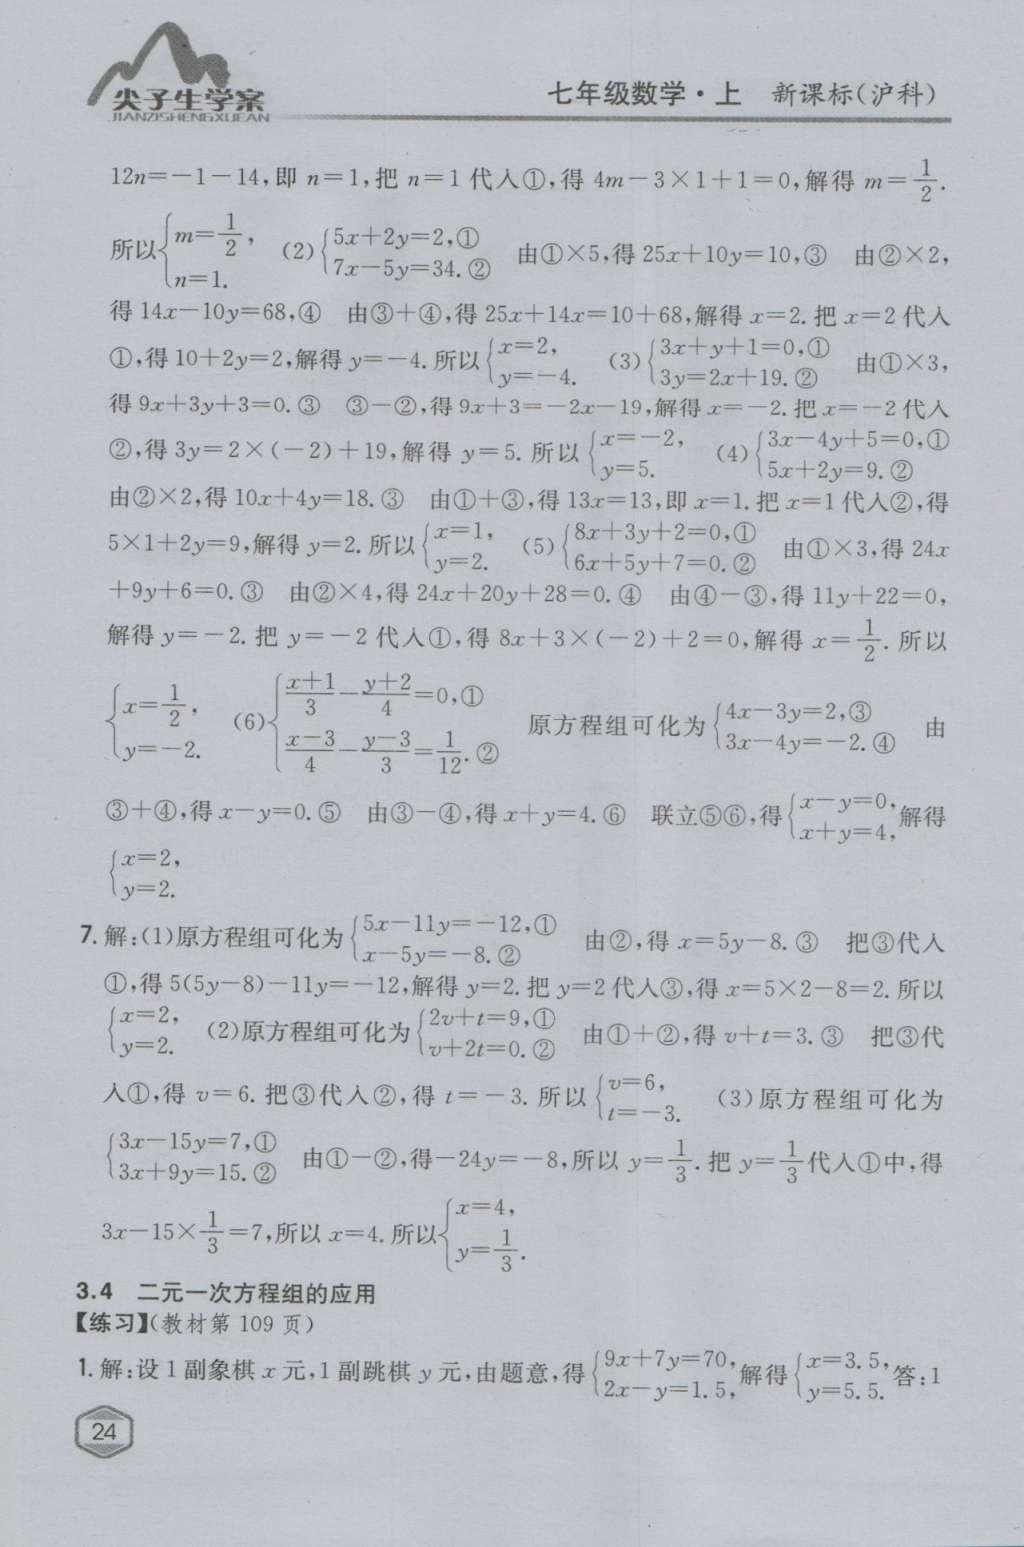 尖子生学案
JIANZISHENGXUEAN
七年级数学·上 新课标(沪科)
12n=-1-14,即 n=1,把 n=1 代入①,得 4m-3×1+1=0,解得 m=1/2.
所以{m=1/2, n=1. (2){5x+2y=2,① 7x-5y=34.② 由①×5,得 25x+10y=10,③ 由②×2,
得 14x-10y=68,④ 由③+④,得 25x+14x=10+68,解得 x=2.把 x=2 代入
①,得 10+2y=2,解得 y=-4.所以{x=2, y=-4. (3){3x+y+1=0,① 3y=2x+19.② 由①×3,
得 9x+3y+3=0.③ ③-②,得 9x+3=-2x-19,解得 x=-2.把 x=-2 代入
②,得 3y=2×(-2)+19,解得 y=5.所以{x=-2, y=5. (4){3x-4y+5=0,① 5x+2y=9.②
由②×2,得 10x+4y=18.③ 由①+③,得 13x=13,即 x=1.把 x=1 代入②,得
5×1+2y=9,解得 y=2.所以{x=1, y=2. (5){8x+3y+2=0,① 6x+5y+7=0.② 由①×3,得 24x
+9y+6=0.③ 由②×4,得 24x+20y+28=0.④ 由④-③,得 11y+22=0,
解得 y=-2.把 y=-2 代入①,得 8x+3×(-2)+2=0,解得 x=1/2.所以
{x=1/2, y=-2. (6){(x+1)/3-(y+2)/4=0,① (x-3)/4-(y-3)/3=1/12.② 原方程组可化为{4x-3y=2,③ 3x-4y=-2.④ 由
③+④,得 x-y=0.⑤ 由③-④,得 x+y=4.⑥ 联立⑤⑥,得{x-y=0, x+y=4,解得
{x=2, y=2.
7.解:(1)原方程组可化为{5x-11y=-12,① x-5y=-8.② 由②,得 x=5y-8.③ 把③代入
①,得 5(5y-8)-11y=-12,解得 y=2.把 y=2 代入③,得 x=5×2-8=2.所以
{x=2, y=2. (2)原方程组可化为{2v+t=9,① v+2t=0.② 由①+②,得 v+t=3.③ 把③代
入①,得 v=6.把③代入②,得 t=-3.所以{v=6, t=-3. (3)原方程组可化为
{3x-15y=7,① 3x+9y=15.② 由①-②,得-24y=-8,所以 y=1/3.把 y=1/3代入①中,得
3x-15×1/3=7,所以 x=4.所以{x=4, y=1/3.
3.4 二元一次方程组的应用
【练习】(教材第 109 页)
1.解:设 1 副象棋 x 元,1 副跳棋 y 元,由题意,得{9x+7y=70, 2x-y=1.5,解得{x=3.5, y=5.5.答:1
24